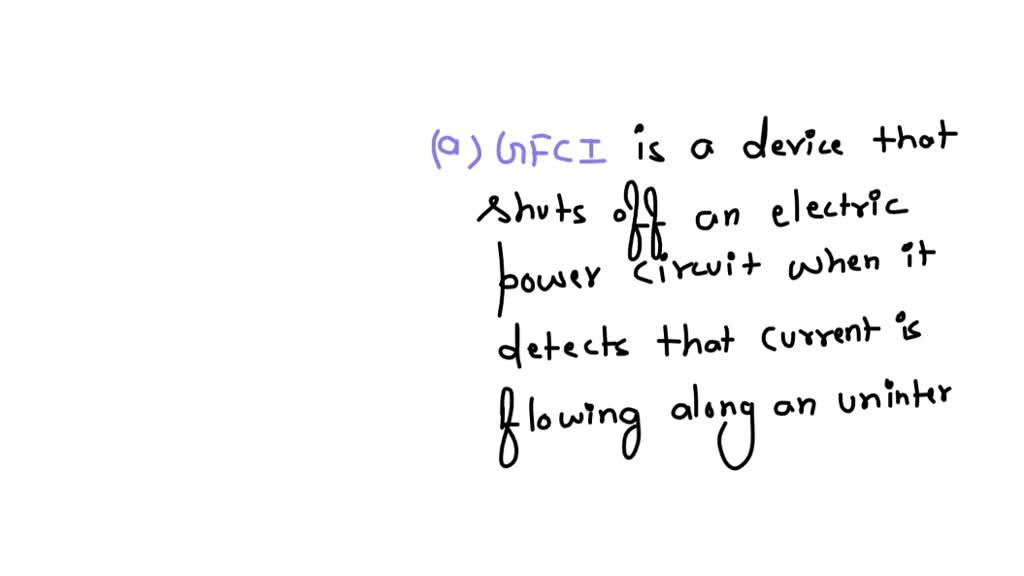 (a) GFCI is a device that
shuts off an electric
power circuit when it
detects that current is
flowing along an uninter